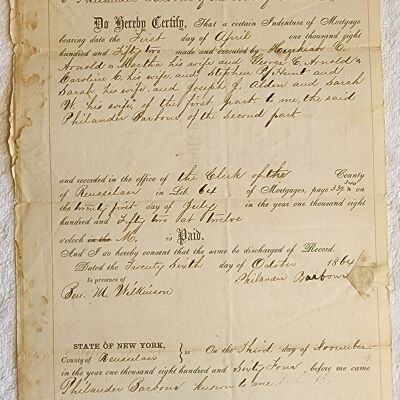 Do Hereby Certify, That a certain Indenture of Mortgage
bearing date the First day of April one thousand eight
hundred and Fifty two made and executed by Hezekiah C.
Arnold & Martha his wife and George C. Arnold &
Caroline C. his wife, and Stephen P. Hunt and
Sarah his wife, and Joseph J. Alden and Sarah
W. his wife of the first part to me the said
Philander Barbour of the second part
and recorded in the office of the Clerk of the County
of Rensselaer in Lib. 64 of Mortgages, page on
the twenty first day of July in the year one thousand eight
hundred and Fifty two at twelve
o'clock in the M. is Paid.
And I do hereby consent that the same be discharged of Record.
Dated the Twenty Sixth day of October 1864
In presence of Philander Barbour
Ben. M. Wilkinson
STATE OF NEW YORK,
County of Rensselaer ss: On the Third day of November
in the year one thousand eight hundred and Sixty Four, before me came
Philander Barbour known to me